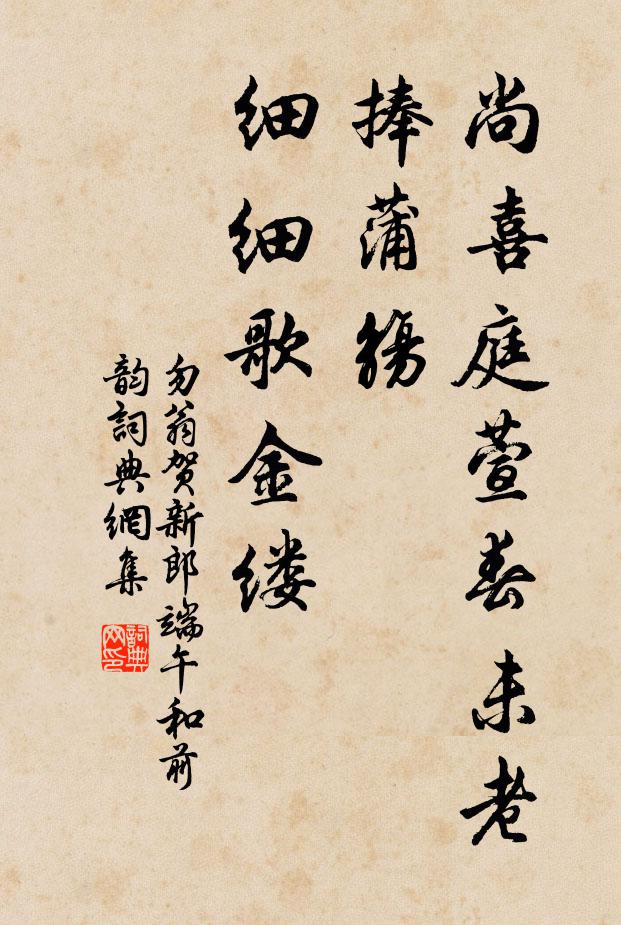 尚喜庭萱春未老
捧蒲觴
细细歌金缕
勿翁贺新郎端午和前
韵詞典網集
詞典
网印